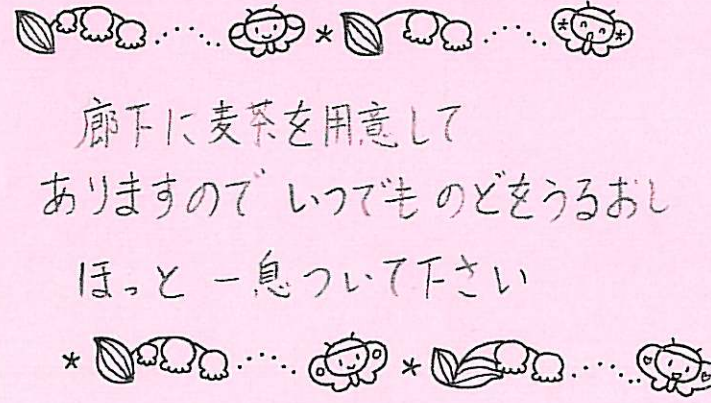 廊下に麦茶を用意して
ありますので いつでも のどをうるおし
ほっと 一息ついて下さい